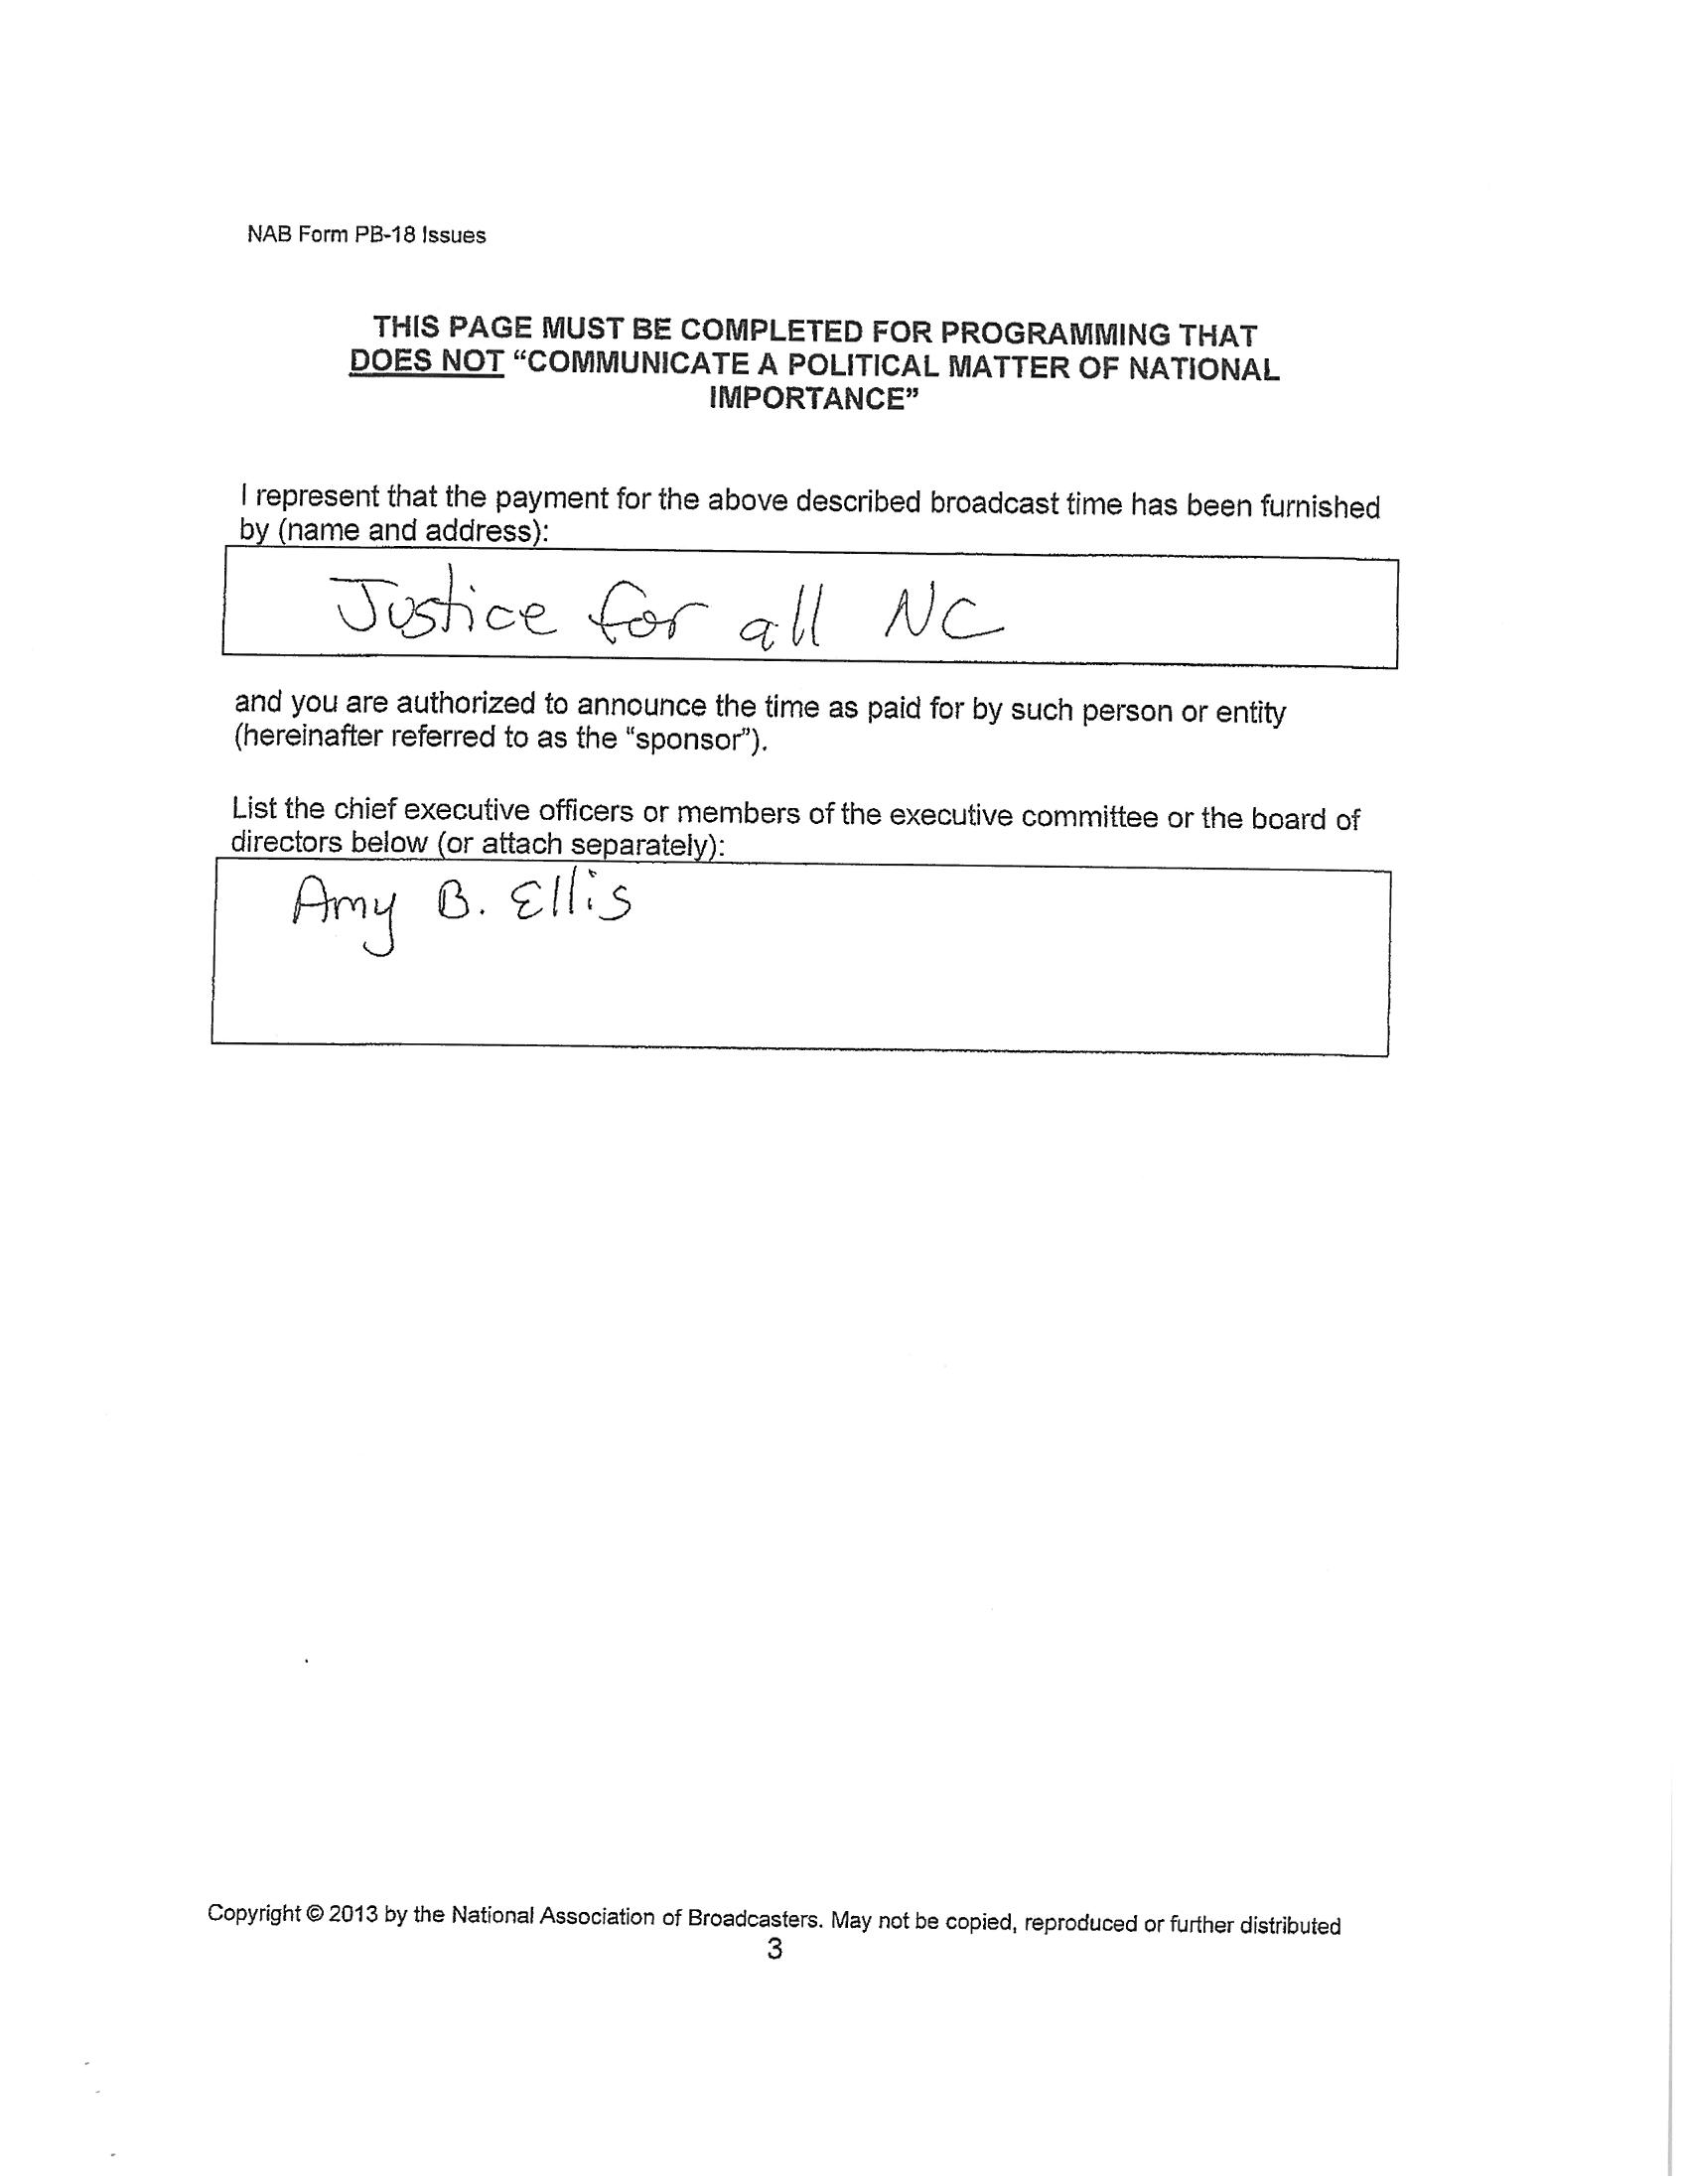 NAB Form PB-18 Issues
THIS PAGE MUST BE COMPLETED FOR PROGRAMMING THAT
DOES NOT “COMMUNICATE A POLITICAL MATTER OF NATIONAL
IMPORTANCE”
I represent that the payment for the above described broadcast time has been furnished
by (name and address):
Justice for all NC
and you are authorized to announce the time as paid for by such person or entity
(hereinafter referred to as the “sponsor”).
List the chief executive officers or members of the executive committee or the board of
directors below (or attach separately):
Amy B. Ellis
Copyright © 2013 by the National Association of Broadcasters. May not be copied, reproduced or further distributed
3